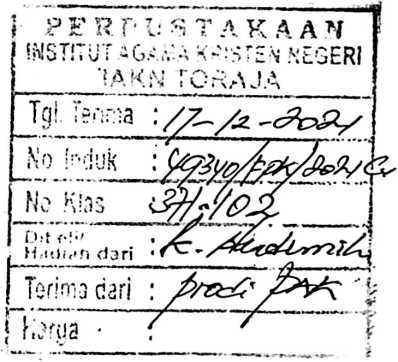 PERPUSTAKAAN
INSTITUT AGAMA KRISTEN NEGERI
IAKN TORAJA
Tgl. Terima : 17-12-2021
No. Induk : 49340/FPK/2021 C1
No Klas : 371.102
Dibeli/
Hadiah dari : K. Akademik
Terima dari : prodi PAK
Harga :